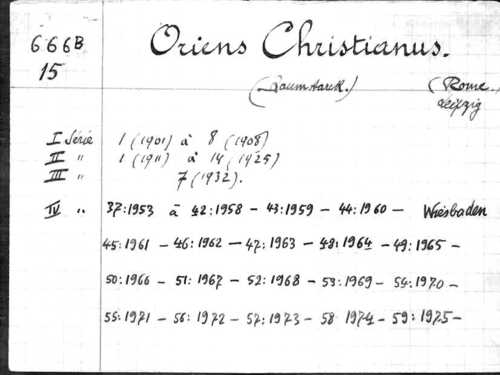 666B Oriens Christianus.
15
(Baumstark.) (Rome.
Leipzig
I Série 1 (1901) à 8 (1908)
II " 1 (1911) à 14 (1925)
III " 7 (1932).
IV " 37:1953 à 42:1958 - 43:1959 - 44:1960 - Wiesbaden
45:1961 - 46:1962 - 47:1963 - 48:1964 - 49:1965 -
50:1966 - 51:1967 - 52:1968 - 53:1969 - 54:1970 -
55:1971 - 56:1972 - 57:1973 - 58 1974 - 59:1975 -